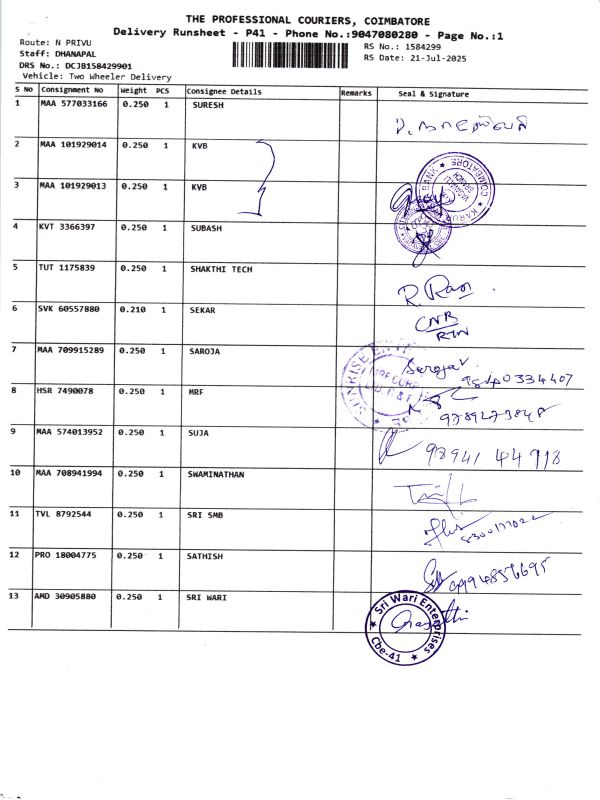 THE PROFESSIONAL COURIERS, COIMBATORE
Delivery Runsheet - P41 - Phone No.:9047080280 - Page No.:1
Route: N PRIVU
RS No.: 1584299
Staff: DHANAPAL
RS Date: 21-Jul-2025
DRS No.: DCJB158429901
Vehicle: Two Wheeler Delivery
S No Consignment No Weight PCS Consignee Details Remarks Seal & Signature
1 MAA 577033166 0.250 1 SURESH
2 MAA 101929014 0.250 1 KVB
3 MAA 101929013 0.250 1 KVB
4 KVT 3366397 0.250 1 SUBASH
5 TUT 1175839 0.250 1 SHAKTHI TECH R. Ram
6 SVK 60557880 0.210 1 SEKAR
7 MAA 709915289 0.250 1 SAROJA Saroja
8 HSR 7490078 0.250 1 MRF
9 MAA 574013952 0.250 1 SUJA
10 MAA 708941994 0.250 1 SWAMINATHAN
11 TVL 8792544 0.250 1 SRI SMB
12 PRO 18004775 0.250 1 SATHISH
13 AMD 30905880 0.250 1 SRI WARI
Sri Wari Enterprises
Cbe-41